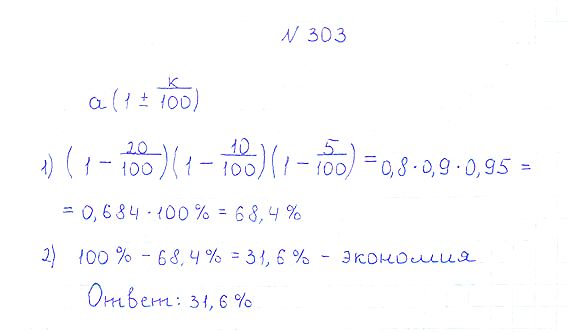 N 303
a(1 ± к/100)
1) (1 - 20/100)(1 - 10/100)(1 - 5/100) = 0,8 · 0,9 · 0,95 =
= 0,684 · 100% = 68,4%
2) 100% - 68,4% = 31,6% - экономия
Ответ: 31,6%